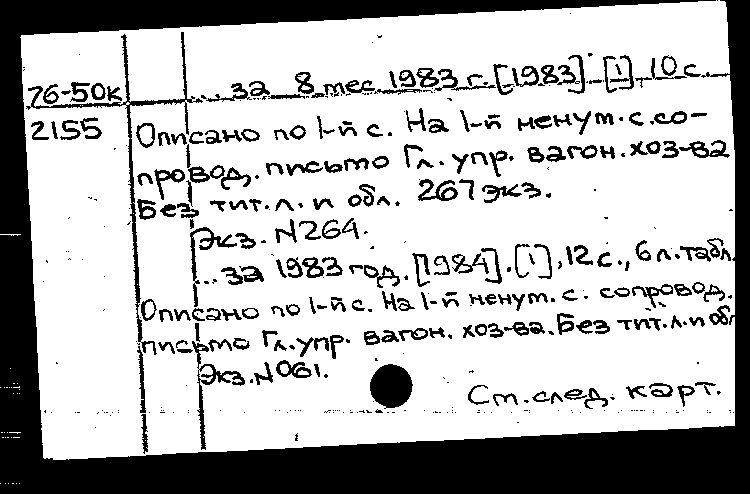 76-50к ... за 8 мес. 1983 г. [1983] [1] 10 с.
2155 Описано по 1-й с. На 1-й ненум. с. со-
провод. письмо Гл. упр. вагон. хоз-ва
Без тит. л. и обл. 267 экз.
Экз. N264.
... за 1983 год. [1984]. [1], 12 с., 6 л. табл.
Описано по 1-й с. На 1-й ненум. с. сопровод.
письмо Гл. упр. вагон. хоз-ва. Без тит. л. и обл
Экз. N061.
Ст. след. карт.